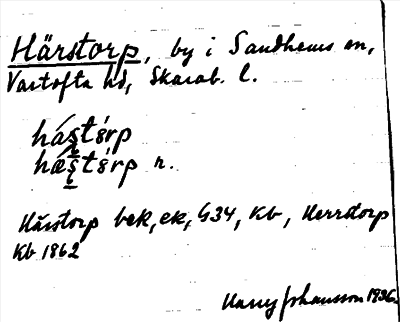 Härstorp, by i Sandhems sn,
Vartofta hd, Skarab. l.
hástórp
hǽstórp n.
Härstorp bek, ek, G34, Kb, Herrstorp
Kb 1862
Harry Johansson 1936.